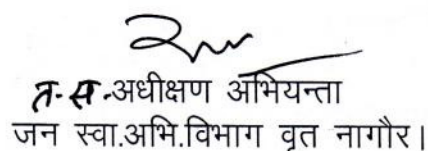 त. स. अधीक्षण अभियन्ता
जन स्वा.अभि.विभाग वृत नागौर।